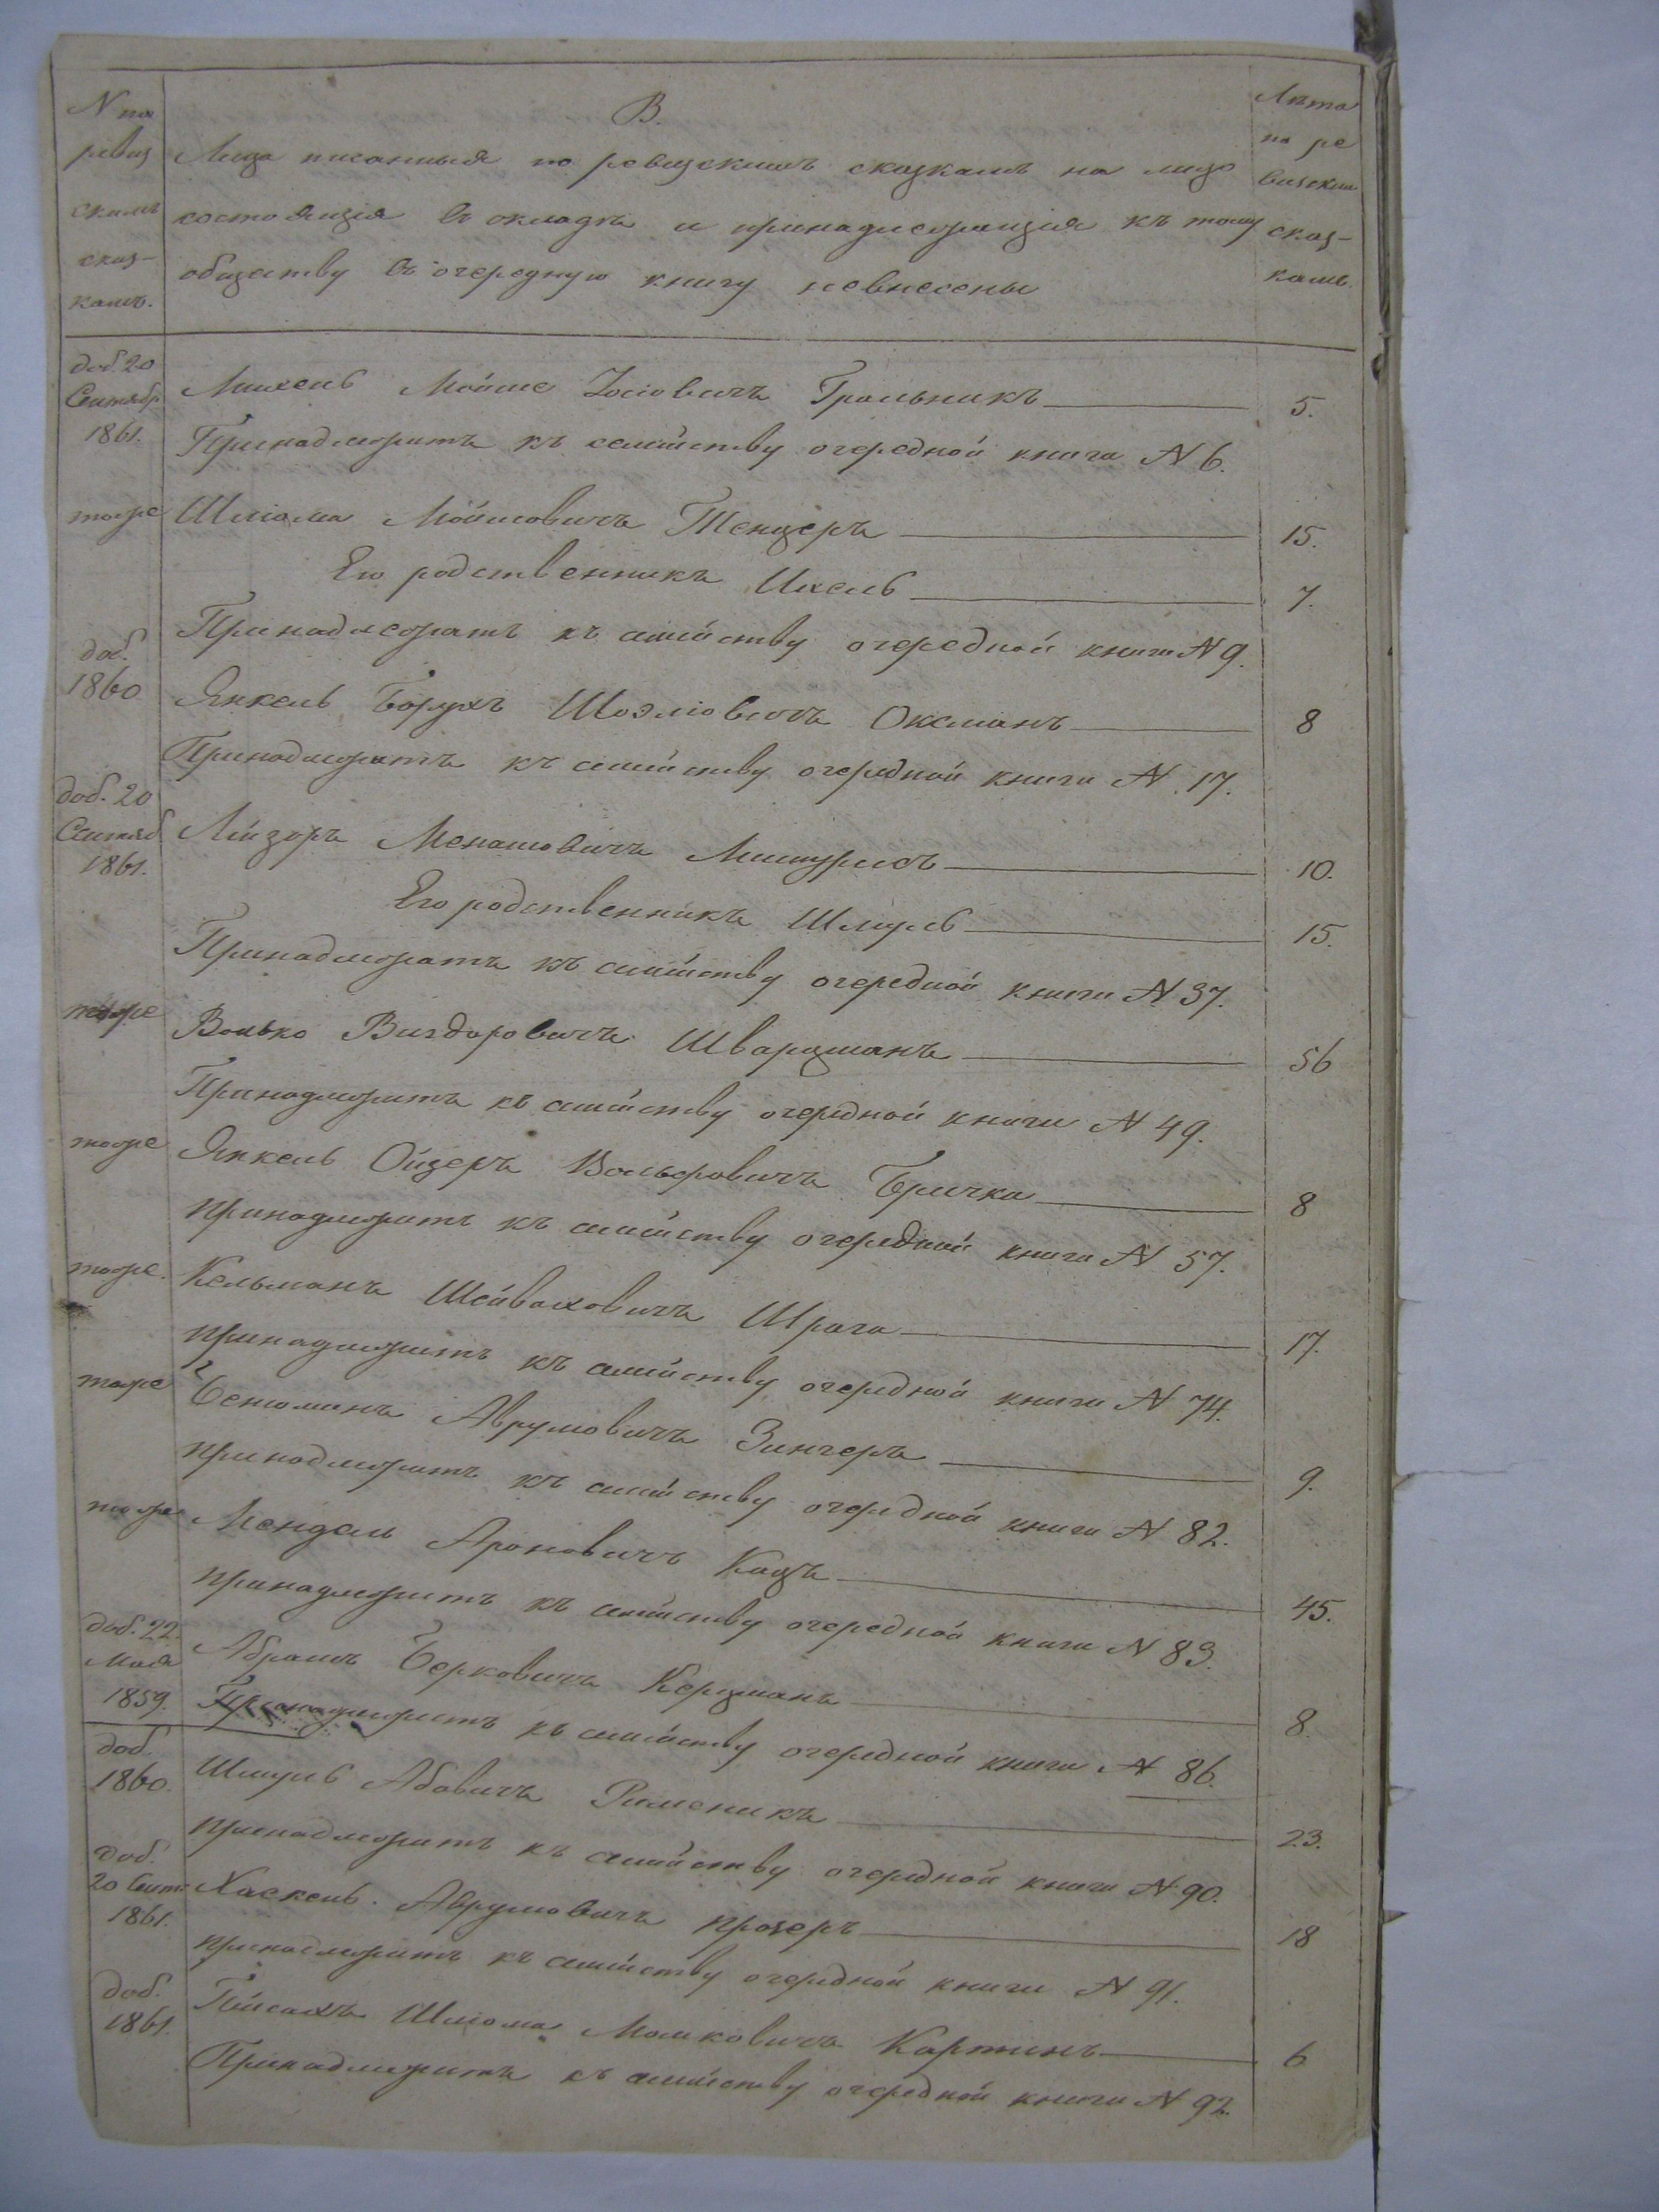 В.
N по
ревиз
скимъ
сказ-
камъ.
Лица писанныя по ревизскимъ сказкамъ на лицо
состоящія въ окладѣ и принадлежащія къ тому
обществу въ очередную книгу невнесены
Лѣта
по ре
визским
сказ-
камъ.
доб. 20
Сентябр
1861.
Михель Мойше Іосіовичъ Грольникъ 5.
Принадлежитъ къ семейству очередной книги N 6.
тоже Шліома Мойшовичъ Тенцеръ 15.
Его родственникъ Ихель 7.
Принадлежатъ къ семейству очередной книги N 9.
доб.
1860 Янкель Борухъ Шоэліовичъ Оксманъ 8
Принадлежитъ къ семейству очередной книги N 17.
доб. 20
Сентяб
1861.
Лейзоръ Менашовичъ Мишурисъ 10.
Его родственникъ Шмуль 15.
Принадлежатъ къ семейству очередной книги N 37.
тоже Волько Вигдоровичъ Шварцманъ 56
Принадлежитъ къ семейству очередной книги N 49.
тоже Янкель Ойзеръ Вольфовичъ Бричка 8
принадлежитъ къ семейству очередной книги N 57.
тоже. Кельманъ Шейваховичъ Шрага 17.
принадлежитъ къ семейству очередной книги N 74.
тоже Беньоминъ Аврумовичъ Зингеръ 9.
принадлежитъ къ семейству очередной книги N 82.
тоже Мендель Ароновичъ Кацъ 45.
принадлежитъ къ семейству очередной книги N 83.
доб. 22
Мая
1859.
Абрамъ Берковичъ Керцманъ 8.
Принадлежитъ къ семейству очередной книги N 86.
доб.
1860. Шмуль Абовичъ Рименикъ 23.
принадлежитъ къ семейству очередной книги N 90.
доб.
20 Сент.
1861.
Хаскель Аврумовичъ Прозеръ 18
принадлежитъ къ семейству очередной книги N 91.
доб.
1861. Пейсахъ Шліома Мошковичъ Картинъ 6
Принадлежитъ къ семейству очередной книги N 92.